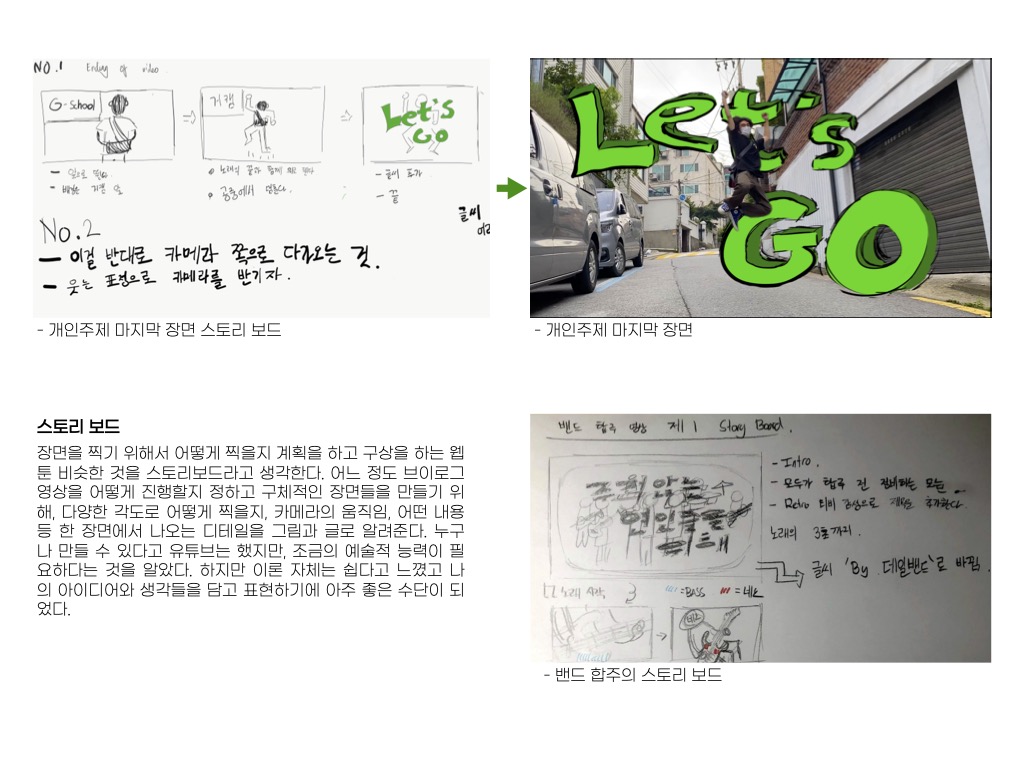 NO.1 Ending of video.
G-School
거캠
Let's
Go
- 앞으로 뛴다
- 배경은 거캠 앞
- 공중에서 멈춘다.
- 글씨 추가
- 끝
글씨
No.2
- 이걸 반대로 카메라 쪽으로 다가오는 것.
- 웃는 표정으로 카메라를 반기자.
- 개인주제 마지막 장면 스토리 보드
Let's
GO
- 개인주제 마지막 장면
스토리 보드
장면을 찍기 위해서 어떻게 찍을지 계획을 하고 구상을 하는 웹
툰 비슷한 것을 스토리보드라고 생각한다. 어느 정도 브이로그
영상을 어떻게 진행할지 정하고 구체적인 장면들을 만들기 위
해, 다양한 각도로 어떻게 찍을지, 카메라의 움직임, 어떤 내용
등 한 장면에서 나오는 디테일을 그림과 글로 알려준다. 누구
나 만들 수 있다고 유튜브는 했지만, 조금의 예술적 능력이 필
요하다는 것을 알았다. 하지만 이론 자체는 쉽다고 느꼈고 나
의 아이디어와 생각들을 담고 표현하기에 아주 좋은 수단이 되
었다.
밴드 합주 영상 제 1 Story Board.
- Intro.
- 모두가 합주 전 준비하는 모습
- Retro 티비 감성으로 제목을 추가한다
노래의 3초까지.
글씨 'By 데일밴드'로 바뀜.
노래 시작
=BASS
- 밴드 합주의 스토리 보드